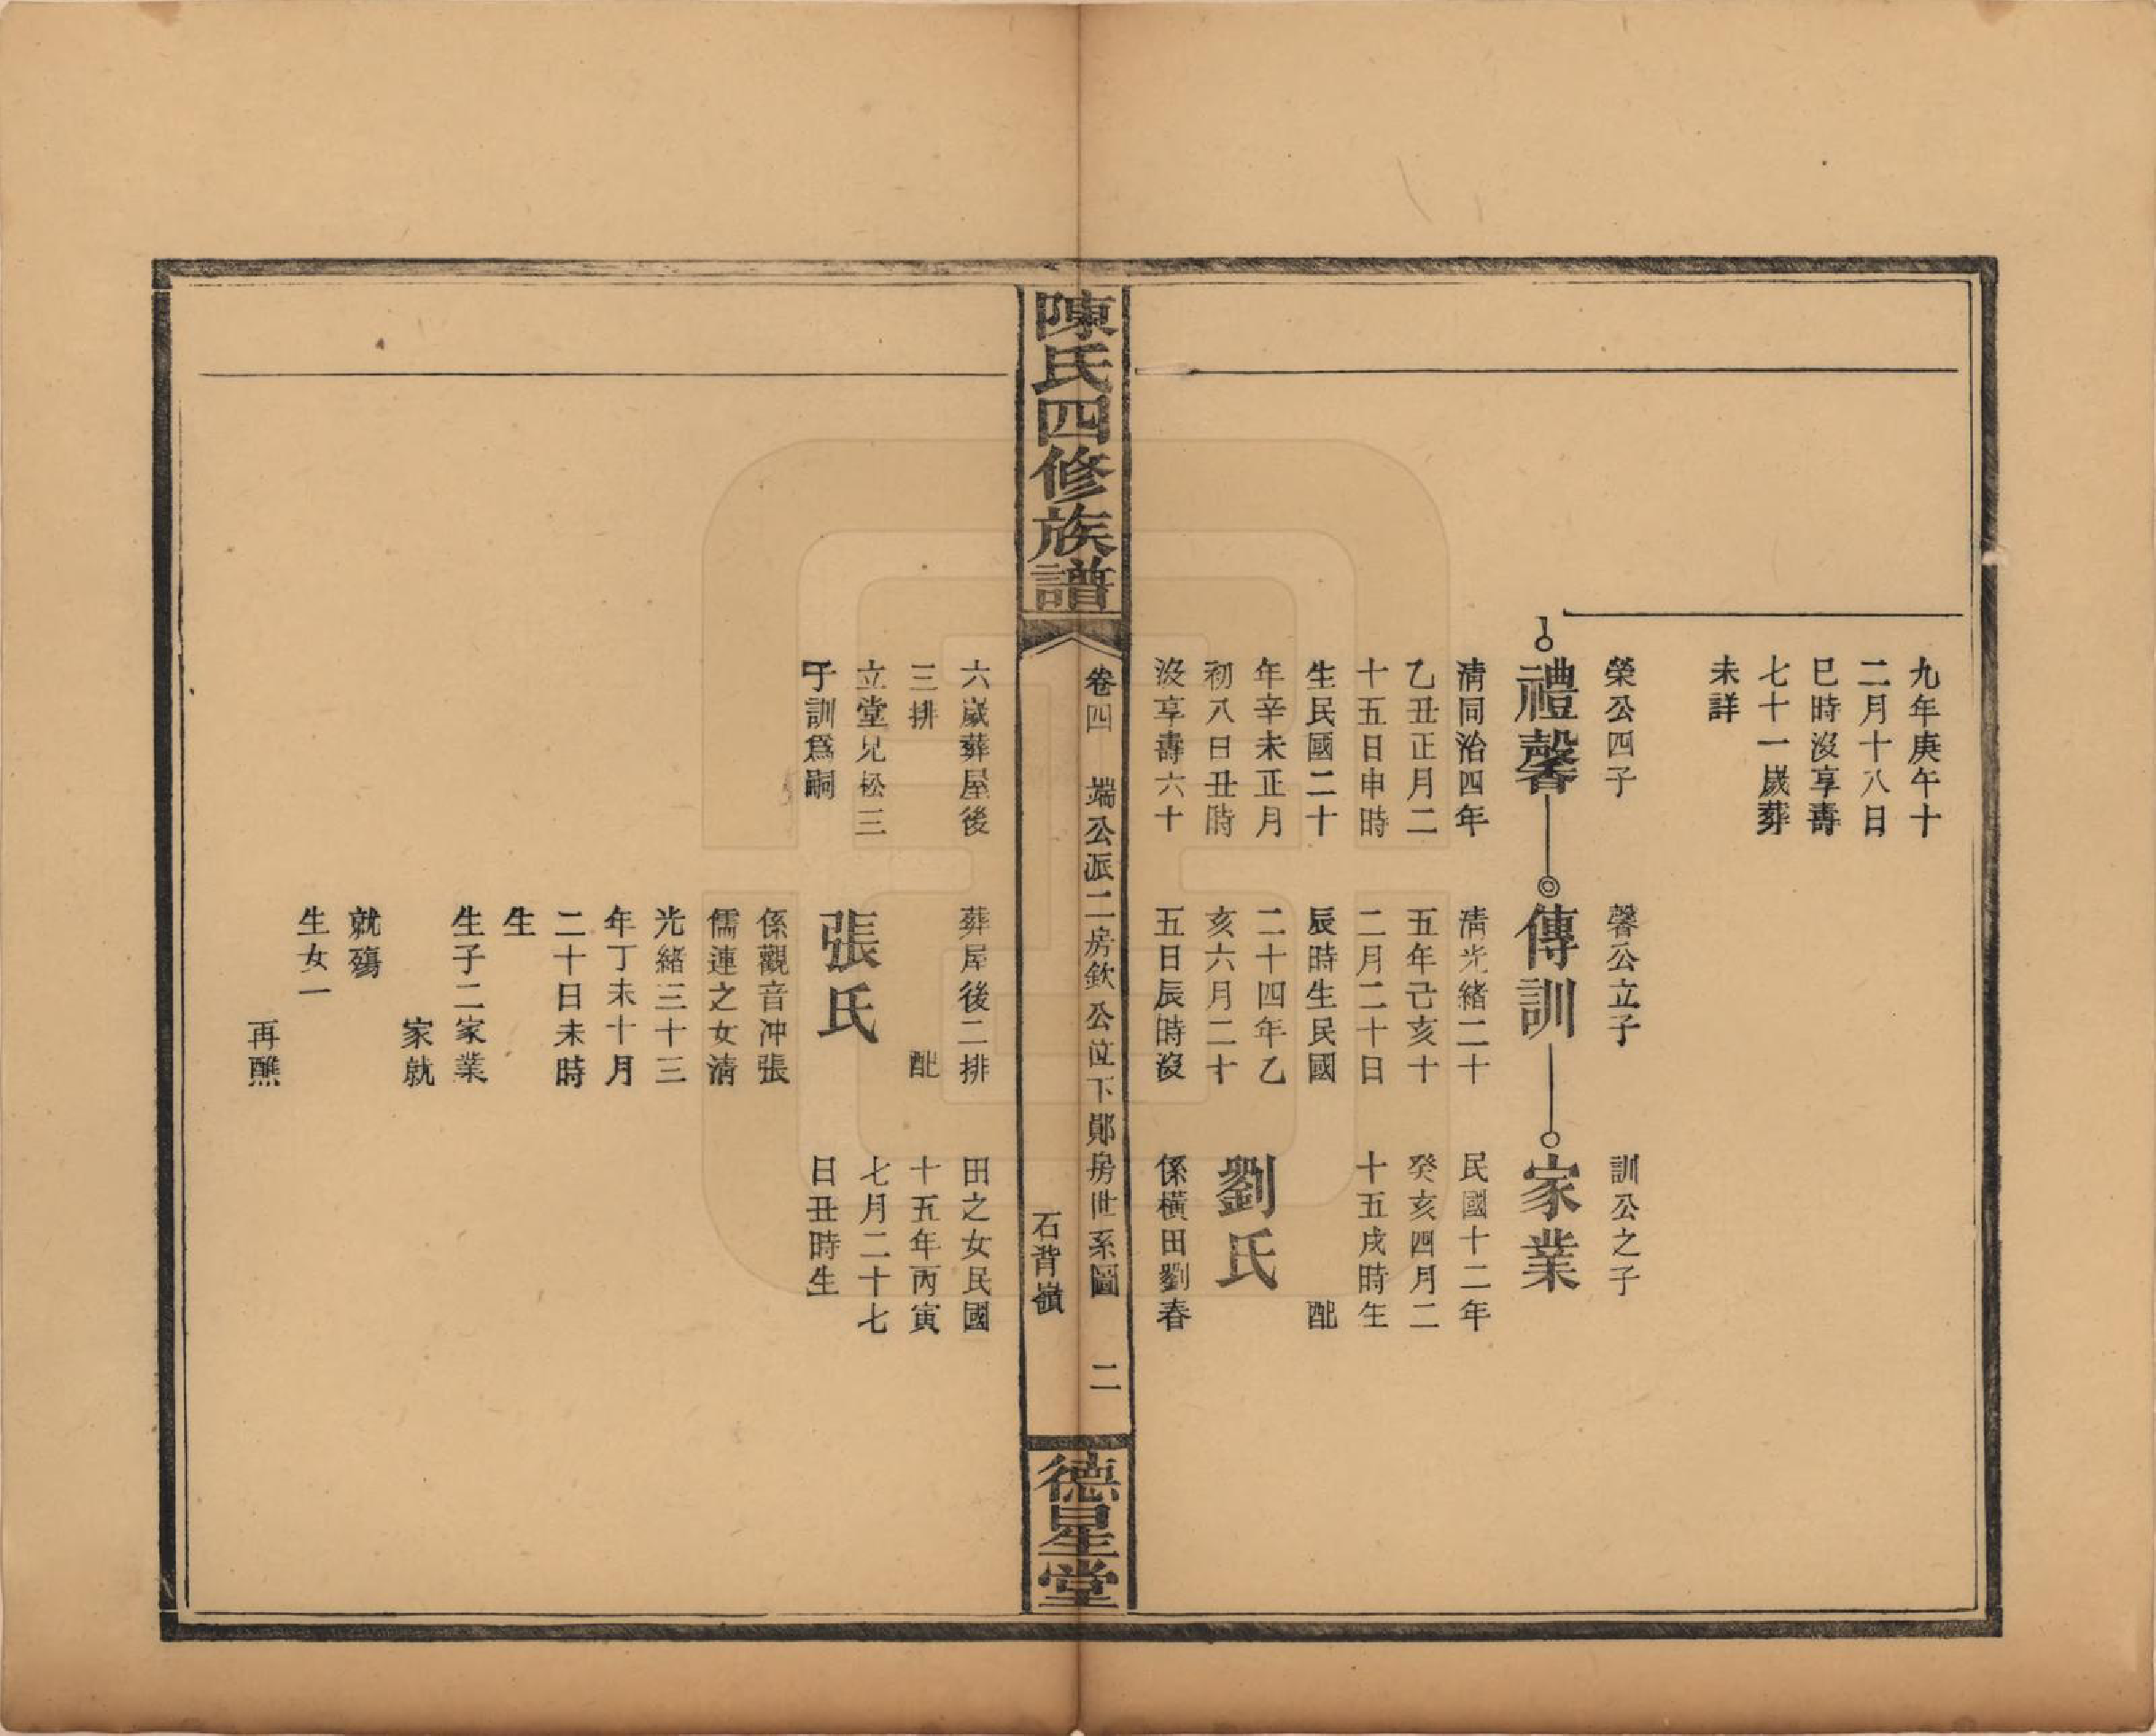 九年庚午十
二月十八日
巳時沒享壽
七十一歲葬
未詳
榮公四子
禮馨
清同治四年
乙丑正月二
十五日申時
生民國二十
年辛未正月
初八日丑時
沒享壽六十
馨公立子
傳訓
清光緒二十
五年己亥十
二月二十日
辰時生民國
二十四年乙
亥六月二十
五日辰時沒
訓公之子
家業
民國十二年
癸亥四月二
十五戌時生
配
劉氏
係橫田劉春
陳氏四修族譜
卷四 端公派二房欽公位下鄖房世系圖 二
石背嶺
德星堂
六歲葬屋後
三排
立堂兄松三
子訓爲嗣
葬屋後二排
配
張氏
係觀音冲張
儒連之女清
光緒三十三
年丁未十月
二十日未時
生
生子二家業
家就
就殤
生女一
再醮
田之女民國
十五年丙寅
七月二十七
日丑時生